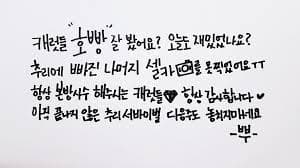 캐럿들 "호빵" 잘 봤어요? 오늘도 재밌었나요?
추리에 빠진 나머지 셀카📷를 못찍었어요ㅠㅠ
항상 본방사수 해주시는 캐럿들💎 항상 감사합니다♥
아직 끝나지 않은 추리 서바이벌 다음주도 놓치지마세요
-뿌-